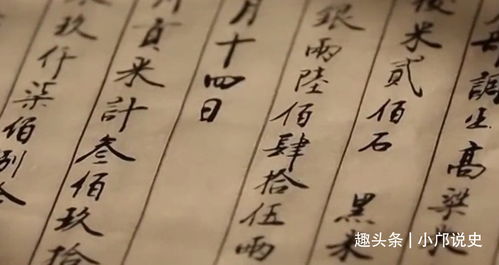 調出高粱米
米貳佰石 黑米
銀兩陸佰肆拾伍兩
月十四日
貢米計叁佰玖拾
玖仟柒佰捌
趣头条 | 小邝说史